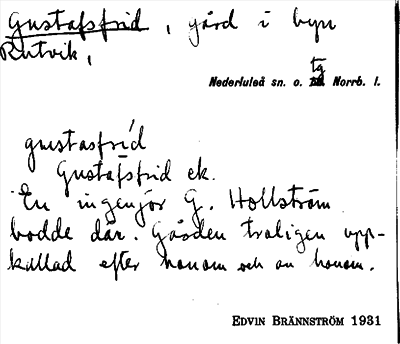 Gustafsfrid, gård i byn
Rutvik,
Nederluleå sn. o. tg Norrb. l.
gustasfríd
Gustafsfrid ek.
En ingenjör G. Hollström
bodde där. Gården troligen upp-
kallad efter honom och av honom.
EDVIN BRÄNNSTRÖM 1931